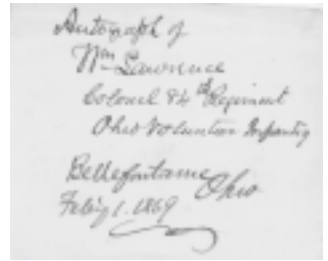 Autograph of
Wm Lawrence
Colonel 84th Regiment
Ohio Volunteer Infantry
Bellefontaine Ohio
Feby 1. 1869